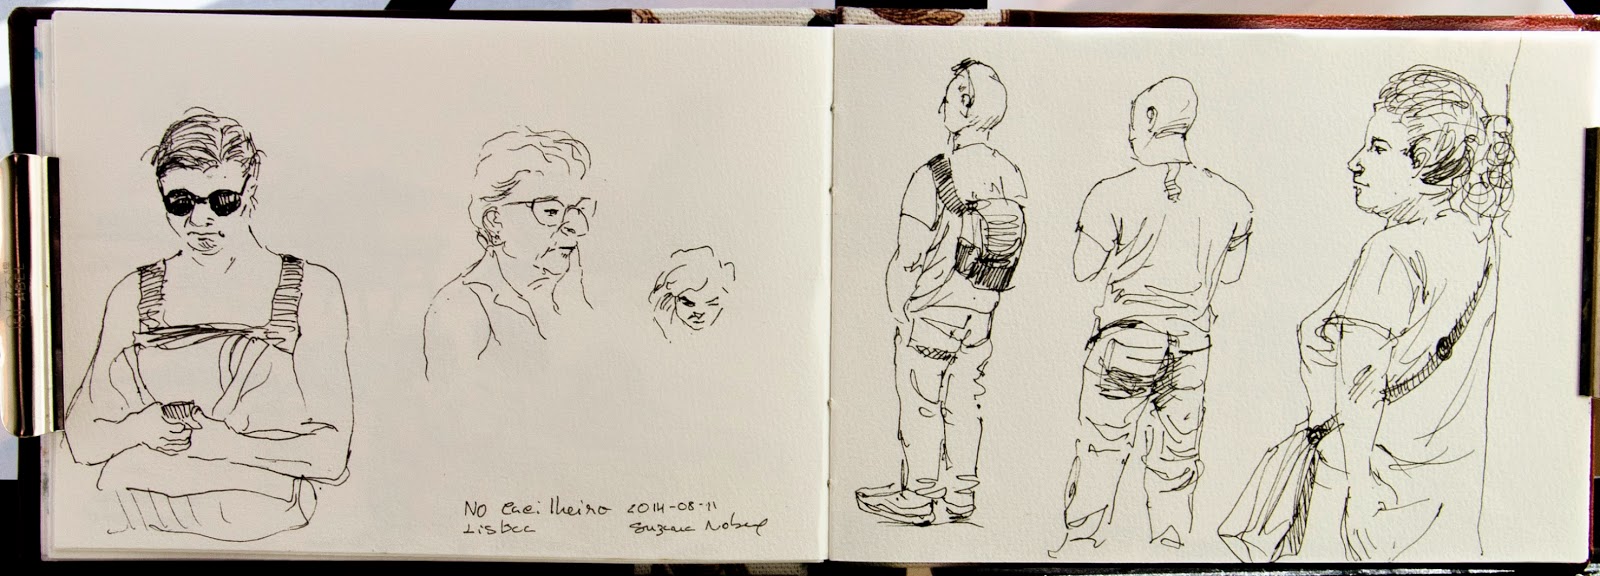 No Cacilheiro 2014-08-11
Lisboa Suzana Nobre